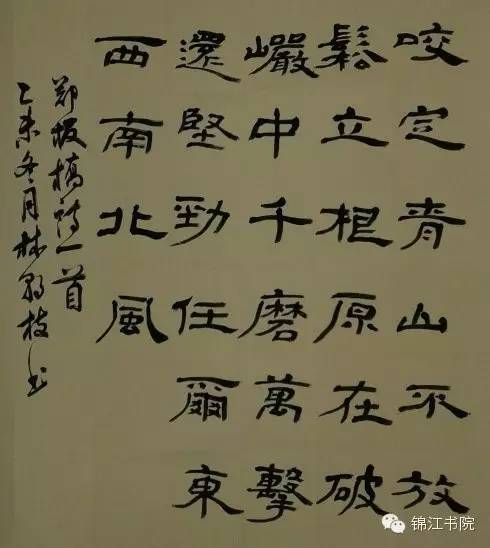 咬定青山不放
鬆立根原在破
巗中千磨萬擊
還堅勁任爾東
西南北風
郑板橋詩一首
乙未冬月林枝书
锦江书院